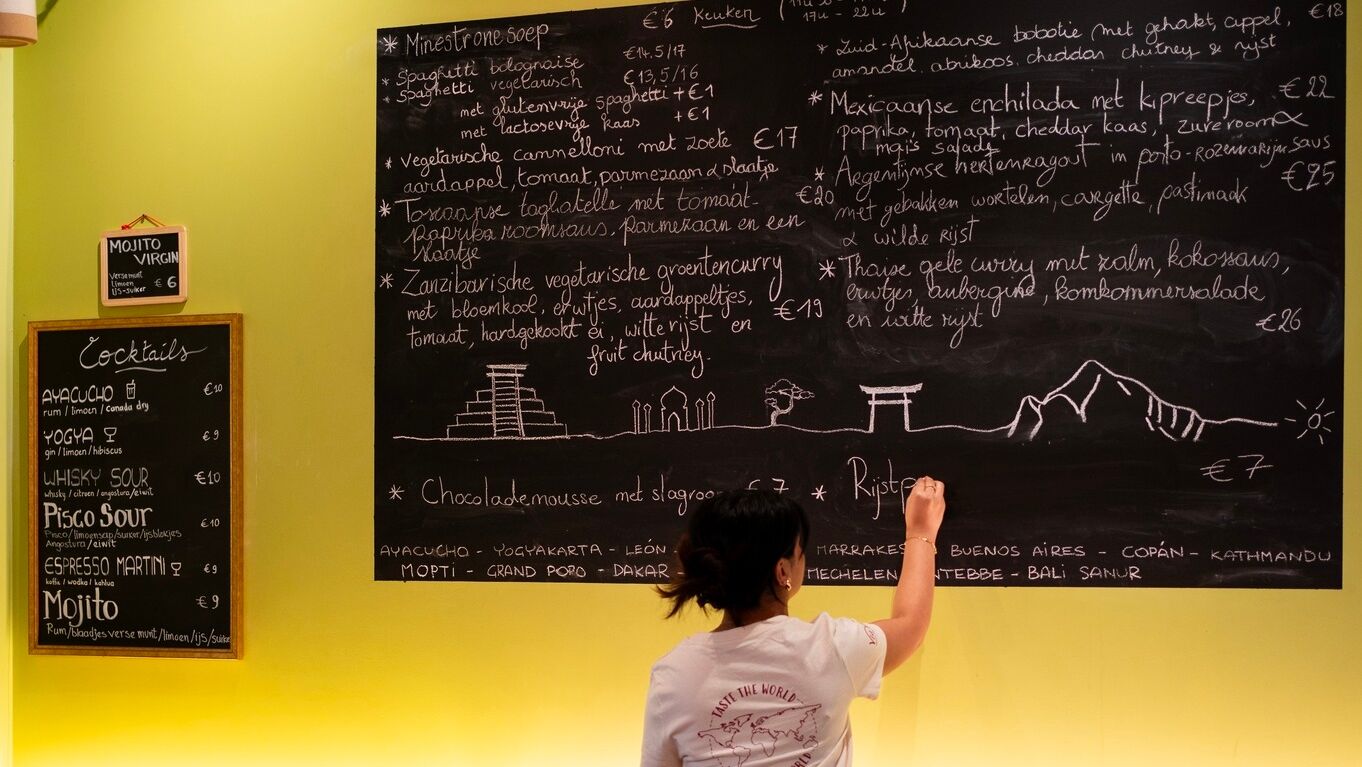 MOJITO
VIRGIN
Verse munt
limoen
ijs-suiker € 6
Cocktails
AYACUCHO €10
rum / limoen / canada dry
YOGYA € 9
gin / limoen / hibiscus
WHISKY SOUR €10
whisky / citroen / angostura / eiwit
PISCO SOUR €10
Pisco/limoensap/suiker/ijsblokjes
Angostura / eiwit
ESPRESSO MARTINI €9
koffie / wodka / kahlua
Mojito € 9
Rum/blaadjes verse munt/limoen/ijs/suiker
* Minestrone soep €6
Keuken
17u - 22u
* Spaghetti bolognaise €14.5/17
* Spaghetti vegetarisch €13,5/16
met glutenvrije spaghetti +€1
met lactosevrije kaas +€1
* Vegetarische cannelloni met zoete €17
aardappel, tomaat, parmezaan & slaatje
* Toscaanse tagliatelle met tomaat- €20
paprika roomsaus, parmezaan en een
slaatje
* Zanzibarische vegetarische groentencurry
met bloemkool, erwtjes, aardappeltjes, €19
tomaat, hardgekookt ei, witte rijst en
fruit chutney.
* Zuid-Afrikaanse bobotie met gehakt, appel, €18
amandel, abrikoos, cheddar, chutney & rijst
* Mexicaanse enchilada met kipreepjes, €22
paprika, tomaat, cheddar kaas, zure room &
maïs salade
* Argentijnse hertenragout in porto-rozemarijnsaus
met gebakken wortelen, courgette, pastinaak €25
& wilde rijst
* Thaise gele curry met zalm, kokossaus,
erwtjes, aubergine, komkommersalade
en witte rijst €26
* Chocolademousse met slagroo € 7
* Rijstp €7
AYACUCHO - YOGYAKARTA - LEÓN MARRAKES BUENOS AIRES - COPÁN - KATHMANDU
MOPTI - GRAND POPO - DAKAR MECHELEN NTEBBE - BALI SANUR
TASTE THE WORLD